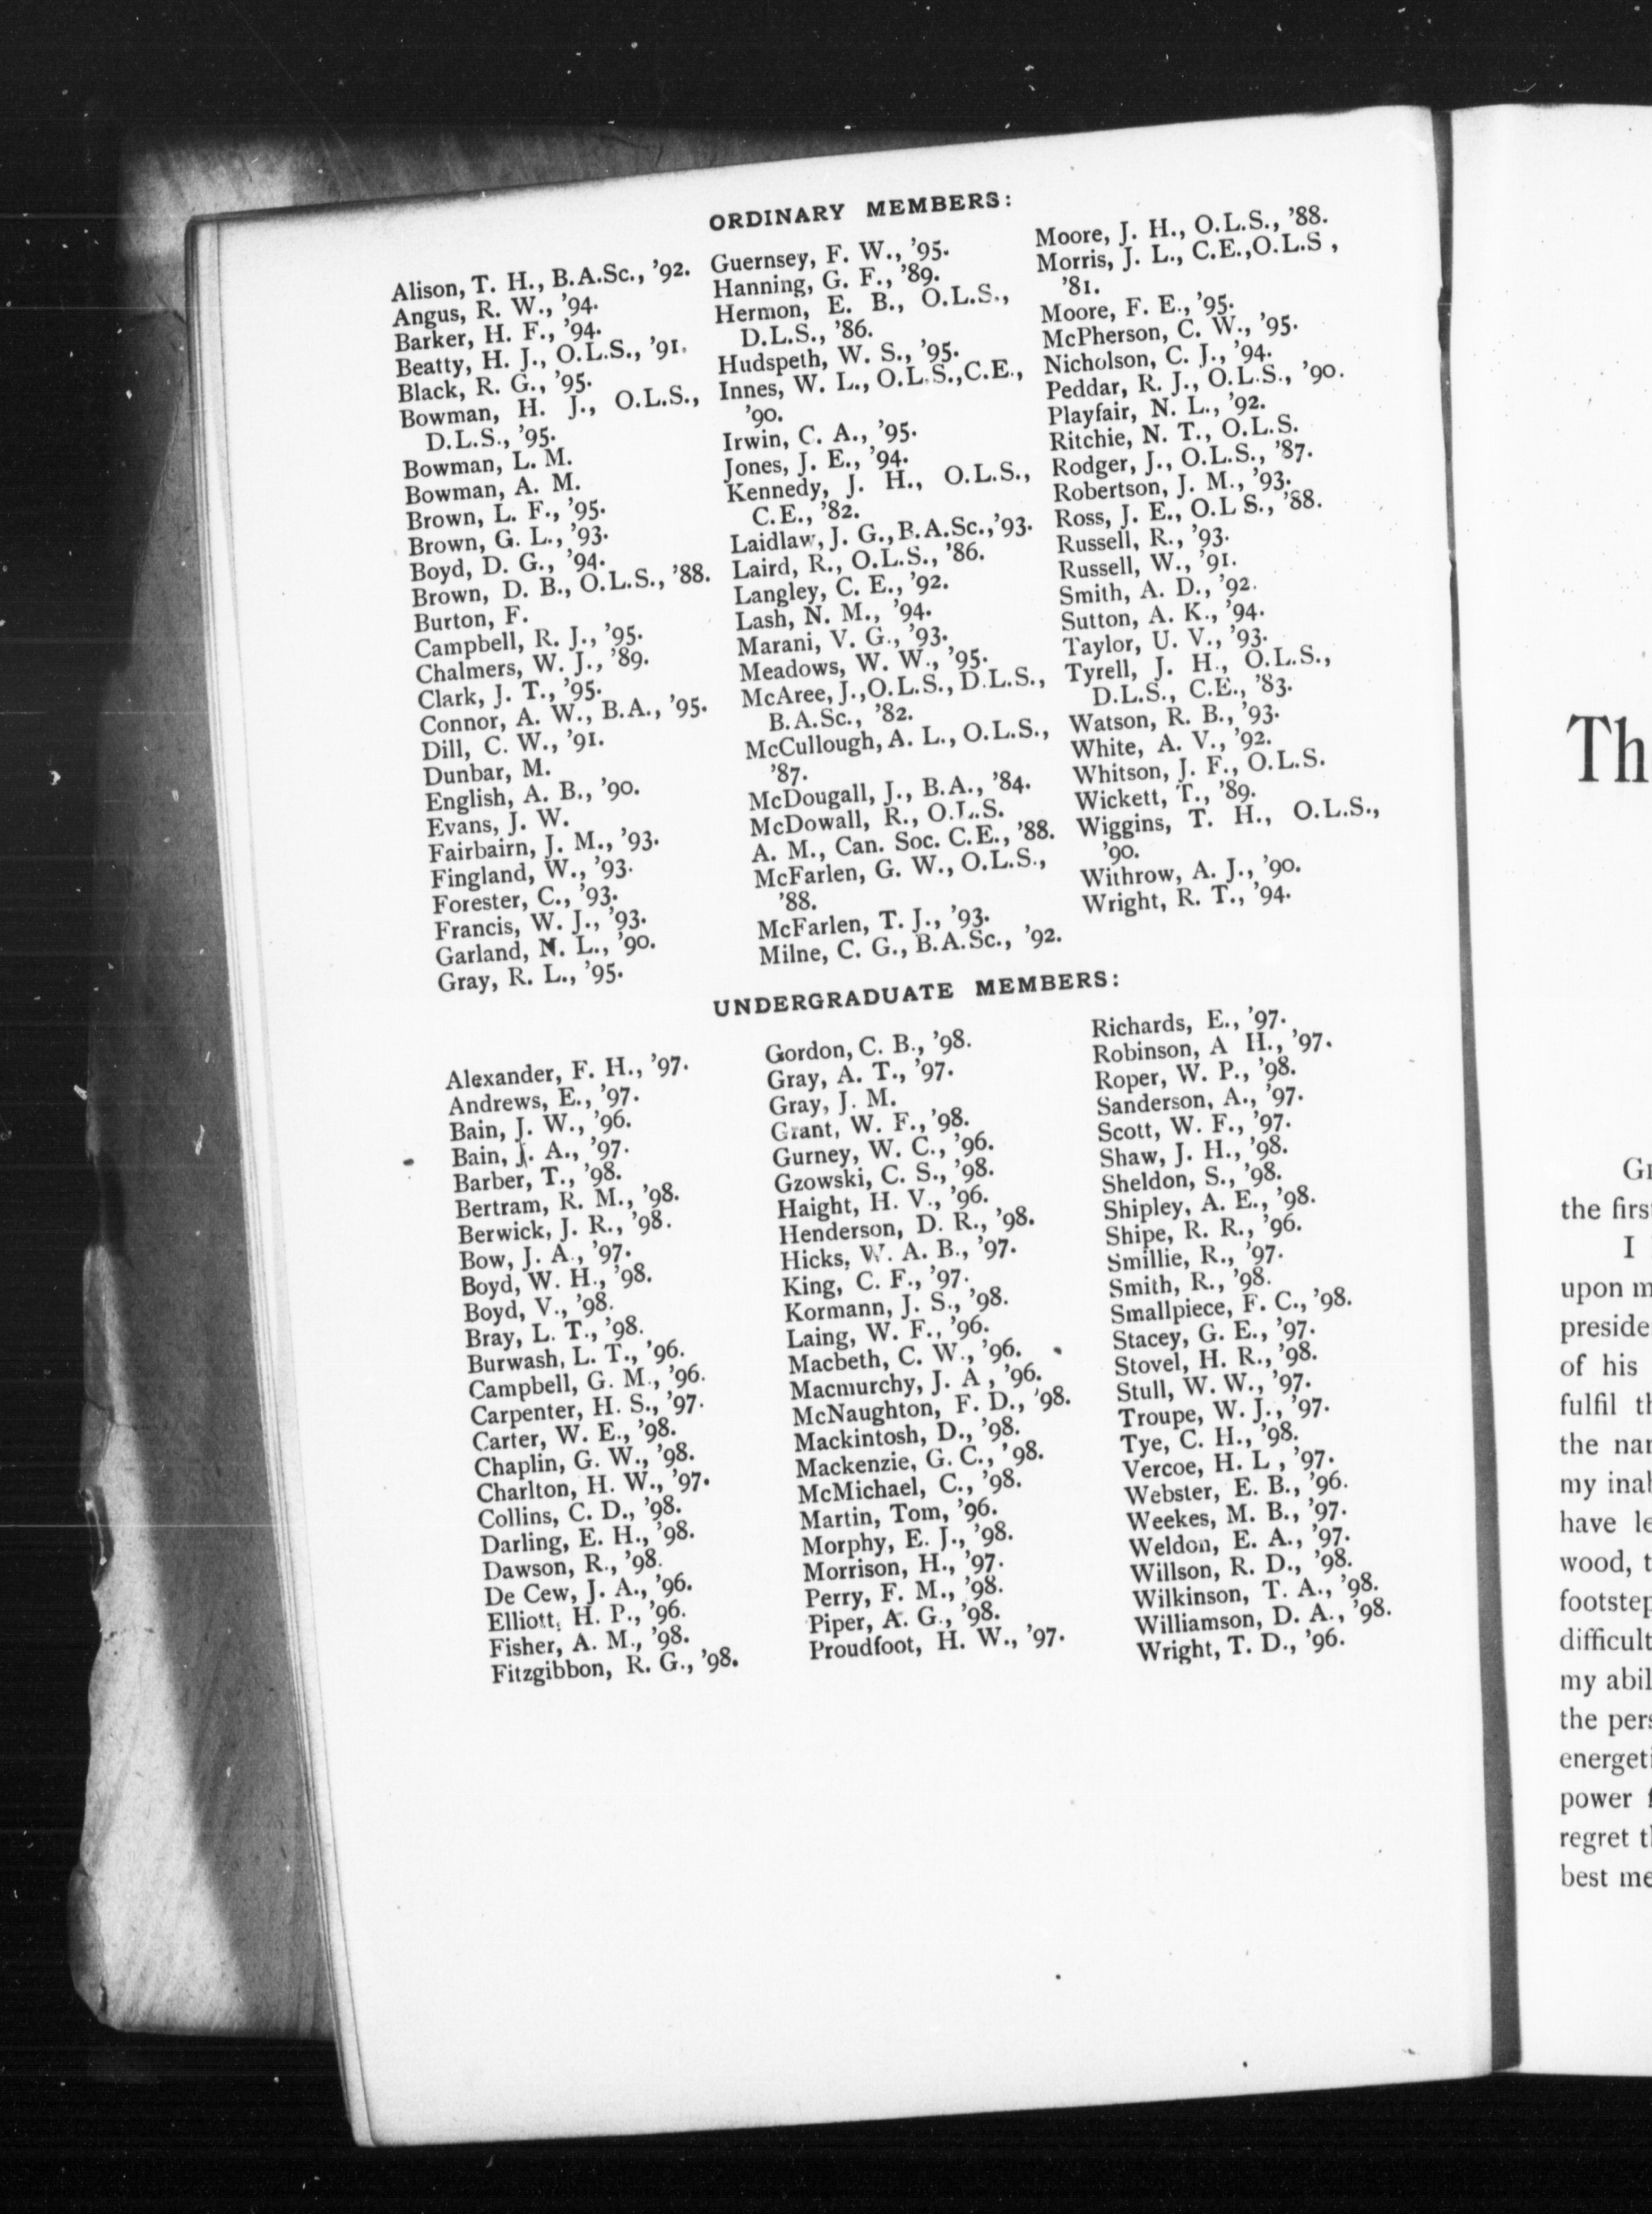 ORDINARY MEMBERS:
Alison, T. H., B.A.Sc., '92.
Angus, R. W., '94.
Barker, H. F., '94.
Beatty, H. J., O.L.S., '91.
Black, R. G., '95.
Bowman, H. J., O.L.S.,
D.L.S., '95.
Bowman, L. M.
Bowman, A. M.
Brown, L. F., '95.
Brown, G. L., '93.
Boyd, D. G., '94.
Brown, D. B., O.L.S., '88.
Burton, F.
Campbell, R. J., '95.
Chalmers, W. J., '89.
Clark, J. T., '95.
Connor, A. W., B.A., '95.
Dill, C. W., '91.
Dunbar, M.
English, A. B., '90.
Evans, J. W.
Fairbairn, J. M., '93.
Fingland, W., '93.
Forester, C., '93.
Francis, W. J., '93.
Garland, N. L., '90.
Gray, R. L., '95.
Guernsey, F. W., '95.
Hanning, G. F., '89.
Hermon, E. B., O.L.S.,
D.L.S., '86.
Hudspeth, W. S., '95.
Innes, W. L., O.L.S.,C.E.,
'90.
Irwin, C. A., '95.
Jones, J. E., '94.
Kennedy, J. H., O.L.S.,
C.E., '82.
Laidlaw, J. G.,B.A.Sc.,'93.
Laird, R., O.L.S., '86.
Langley, C. E., '92.
Lash, N. M., '94.
Marani, V. G., '93.
Meadows, W. W., '95.
McAree, J.,O.L.S., D.L.S.,
B.A.Sc., '82.
McCullough, A. L., O.L.S.,
'87.
McDougall, J., B.A., '84.
McDowall, R., O.L.S.
A. M., Can. Soc. C.E., '88.
McFarlen, G. W., O.L.S.,
'88.
McFarlen, T. J., '93.
Milne, C. G., B.A.Sc., '92.
Moore, J. H., O.L.S., '88.
Morris, J. L., C.E.,O.L.S ,
'81.
Moore, F. E., '95.
McPherson, C. W., '95.
Nicholson, C. J., '94.
Peddar, R. J., O.L.S., '90.
Playfair, N. L., '92.
Ritchie, N. T., O.L.S.
Rodger, J., O.L.S., '87.
Robertson, J. M., '93.
Ross, J. E., O.L S., '88.
Russell, R., '93.
Russell, W., '91.
Smith, A. D., '92.
Sutton, A. K., '94.
Taylor, U. V., '93.
Tyrell, J. H., O.L.S.,
D.L.S., C.E., '83.
Watson, R. B., '93.
White, A. V., '92.
Whitson, J. F., O.L.S.
Wickett, T., '89.
Wiggins, T. H., O.L.S.,
'90.
Withrow, A. J., '90.
Wright, R. T., '94.
UNDERGRADUATE MEMBERS:
Alexander, F. H., '97.
Andrews, E., '97.
Bain, J. W., '96.
Bain, J. A., '97.
Barber, T., '98.
Bertram, R. M., '98.
Berwick, J. R., '98.
Bow, J. A., '97.
Boyd, W. H., '98.
Boyd, V., '98.
Bray, L. T., '98.
Burwash, L. T., '96.
Campbell, G. M., '96.
Carpenter, H. S., '97.
Carter, W. E., '98.
Chaplin, G. W., '98.
Charlton, H. W., '97.
Collins, C. D., '98.
Darling, E. H., '98.
Dawson, R., '98.
De Cew, J. A., '96.
Elliott, H. P., '96.
Fisher, A. M., '98.
Fitzgibbon, R. G., '98.
Gordon, C. B., '98.
Gray, A. T., '97.
Gray, J. M.
Grant, W. F., '98.
Gurney, W. C., '96.
Gzowski, C. S., '98.
Haight, H. V., '96.
Henderson, D. R., '98.
Hicks, W. A. B., '97.
King, C. F., '97.
Kormann, J. S., '98.
Laing, W. F., '96.
Macbeth, C. W., '96.
Macmurchy, J. A , '96.
McNaughton, F. D., '98.
Mackintosh, D., '98.
Mackenzie, G. C., '98.
McMichael, C., '98.
Martin, Tom, '96.
Morphy, E. J., '98.
Morrison, H., '97.
Perry, F. M., '98.
Piper, A. G., '98.
Proudfoot, H. W., '97.
Richards, E., '97.
Robinson, A H., '97.
Roper, W. P., '98.
Sanderson, A., '97.
Scott, W. F., '97.
Shaw, J. H., '98.
Sheldon, S., '98.
Shipley, A. E., '98.
Shipe, R. R., '96.
Smillie, R., '97.
Smith, R., '98.
Smallpiece, F. C., '98.
Stacey, G. E., '97.
Stovel, H. R., '98.
Stull, W. W., '97.
Troupe, W. J., '97.
Tye, C. H., '98.
Vercoe, H. L , '97.
Webster, E. B., '96.
Weekes, M. B., '97.
Weldon, E. A., '97.
Willson, R. D., '98.
Wilkinson, T. A., '98.
Williamson, D. A., '98.
Wright, T. D., '96.
Th
the
I
upon
of his
fulfil
the
my
have
wood,
my
the
power
regret
best